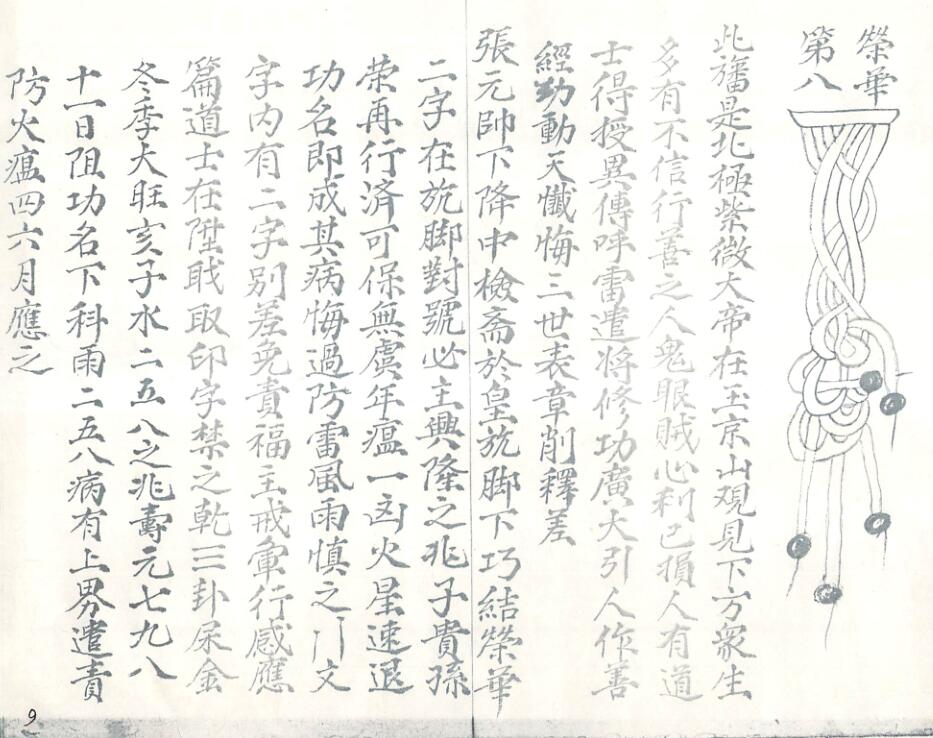 榮華
第八
此旛是北極紫微大帝在玉京山覌見下方衆生
多有不信行善之人鬼眼賊心利己損人有道
士得授異傳呼雷遣將修功廣大引人作善
經功動天懺悔三世表章削釋差
張元帥下降中檢斋於皇旊脚下巧結榮華
二字在旊脚對號必主興隆之兆子貴孫
荣再行済可保無虞年瘟一凶火星速退
功名即成其病悔過防雷風雨慎之文
字内有二字別差免責福主戒軍行感應
篇道士在陞戝取印字禁之乾三卦尿金
冬季大旺亥子水二五八之兆壽元七九八
十一日阻功名下科雨二五八病有上界遣責
防火瘟四六月應之
9